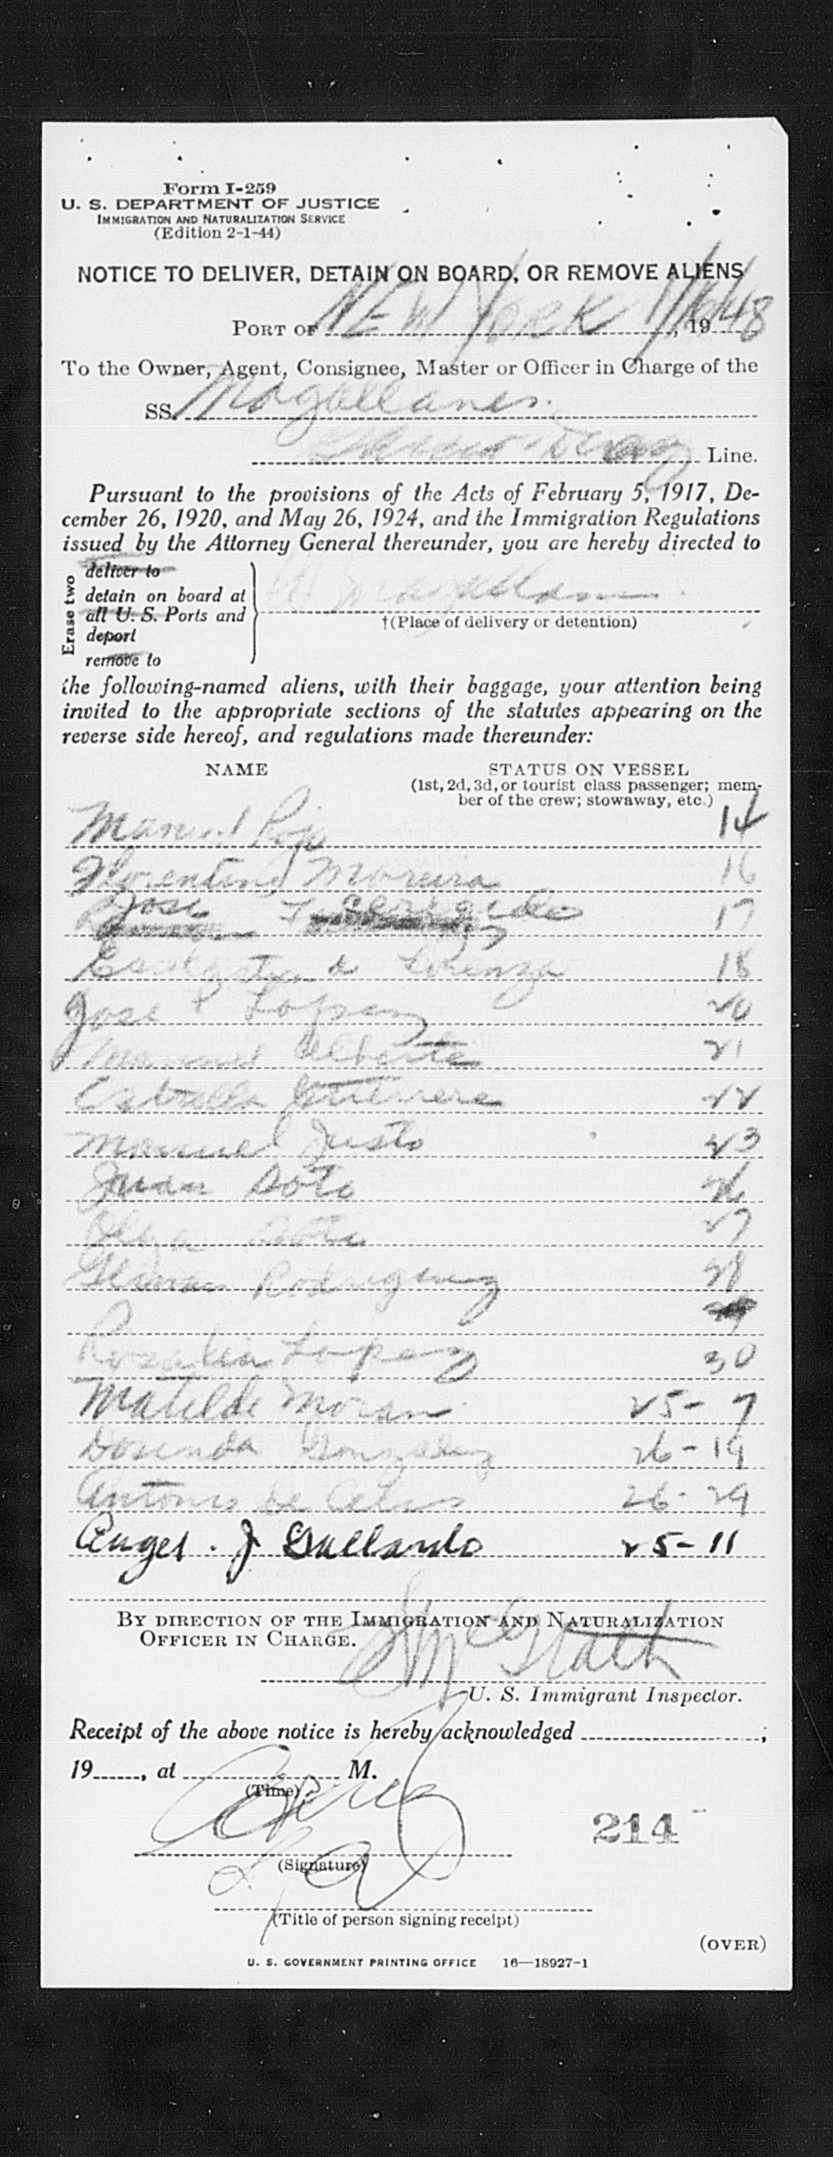 Form I-259
U. S. DEPARTMENT OF JUSTICE
IMMIGRATION AND NATURALIZATION SERVICE
(Edition 2-1-44)
NOTICE TO DELIVER, DETAIN ON BOARD, OR REMOVE ALIENS
PORT OF NEW YORK 1/16/48, 19
To the Owner, Agent, Consignee, Master or Officer in Charge of the
SS. Magallanes.
Line.
Pursuant to the provisions of the Acts of February 5, 1917, De-
cember 26, 1920, and May 26, 1924, and the Immigration Regulations
issued by the Attorney General thereunder, you are hereby directed to
Erase two
deliver to
detain on board at
all U. S. Ports and
deport
remove to
†(Place of delivery or detention)
the following-named aliens, with their baggage, your attention being
invited to the appropriate sections of the statutes appearing on the
reverse side hereof, and regulations made thereunder:
NAME STATUS ON VESSEL
(1st, 2d, 3d, or tourist class passenger; mem-
ber of the crew; stowaway, etc.)
Manuel 14
Florentino Moreira 16
Jose 17
Lorenzo 18
Jose Lopez 20
Manuel Alberte 21
Estrella 22
Manuel Justo 23
Juan Soto 26
Olga Soto 27
Rodriguez 28
Rosalia Lopez 30
Matilde Moran 25-7
Dosinda Gonzalez 26-19
Antonio de Celis 26-29
Angel. J Gallardo 25-11
BY DIRECTION OF THE IMMIGRATION AND NATURALIZATION
OFFICER IN CHARGE.
McGrath
U. S. Immigrant Inspector.
Receipt of the above notice is hereby acknowledged ,
19 , at M.
(Time)
214
(Signature)
(Title of person signing receipt)
(OVER)
U. S. GOVERNMENT PRINTING OFFICE 16—18927-1